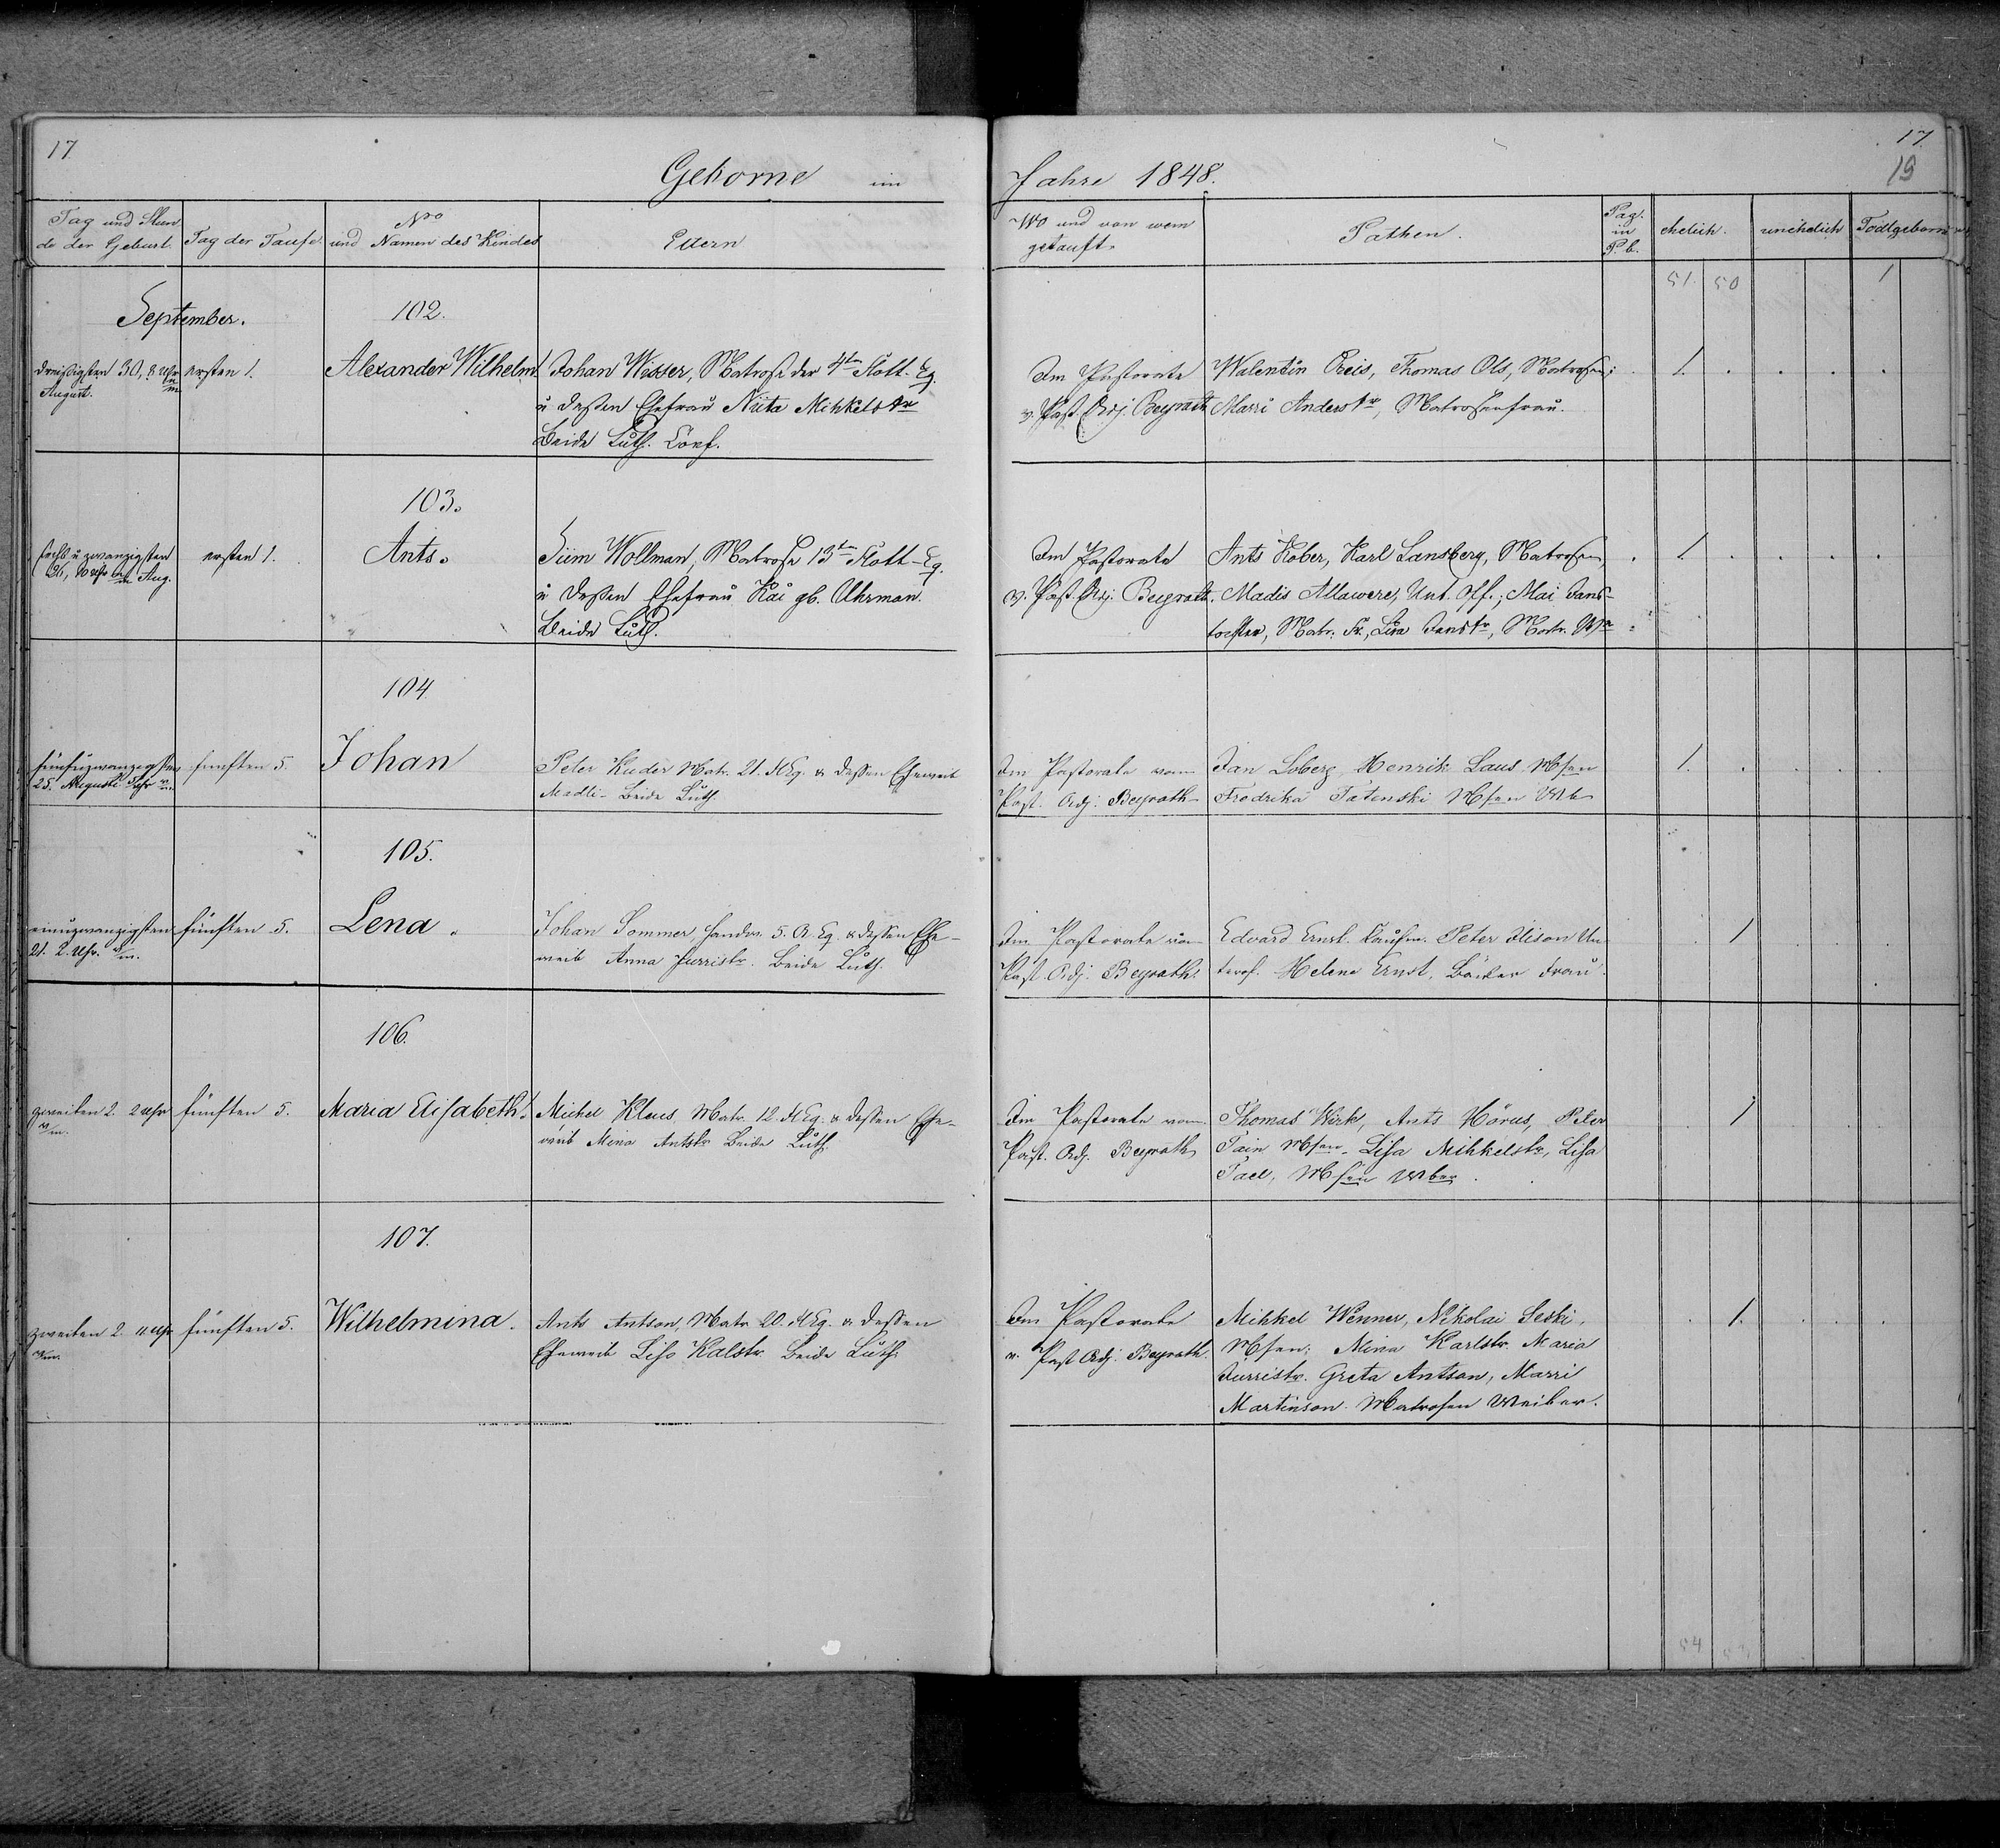 17
17
19
Geborne im Jahre 1848.
Tag und Stun
de der Geburt.
Tag der Taufe.
No
und Namen des Kindes
Eltern
Wo und von wem
getauft.
Pathen.
Pag.
in
P. b.
ehelich.
unehelich
Todtgeborne
51. 50 1
September.
102.
dreißigsten 30, 8 Uhr
August.
ersten 1.
Alexander Wilhelm.
Johan Wisser, Matrose der 4ten Flott. Eq.
u dessen Ehefrau Nita Mihkelstr
Beide Luth. Conf.
Im Pastorate
v. Past. Adj. Beyrath
Walentin Preis, Thomas Ols, Matrosen;
Marri Anderstr, Matrosenfrau.
1.
103.
sechs u zwanzigsten
26, 10 Uhr Aug.
ersten 1.
Ants.
Siim Wollman, Matrose 13ten Flott-Eq.
u dessen Ehefrau Kai gb. Uhrman.
Beide Luth.
Im Pastorate
v. Past. Adj. Beyrath.
Ants Kober, Karl Lansberg, Matrosen,
Madis Allawere, Unt. Off.; Mai Jans-
tochter, Matr. Fr., Lisa Janstr, Matr.
1.
104
fünfuzwanzigsten
25. August
fünften 5.
Johan
Peter Kuder Matr. 21. Fl Eq. u dessen Eheweib
Madli- Beide Luth.
Im Pastorate vom
Past. Adj. Beyrath
Jan Loberg, Henrik Laus M sen
Fredrika Tatenski M sen Wb
1.
105.
einuzwanzigsten
21. 2. Uhr.
fünften 5.
Lena.
Johan Sommer Handw. 5. A. Eq. u dessen Ehe-
weib Anna Jurristr. Beide Luth.
Im Pastorate von
Past. Adj. Beyrath.
Edvard Ernst. Kaufm. Peter Un
terof. Helene Ernst, Bäcker Frau.
1
106.
zweiten 2. 2 Uhr
fünften 5.
Maria Elisabeth.
Michel Klaus, Matr. 12. Fl Eq. u dessen Ehe-
weib Mina Antstr Beide Luth.
Im Pastorate vom
Past. Adj. Beyrath
Thomas Wirk, Ants Hörus, Peter
Tain M sen. Lisa Mihkelstr, Lisa
Tael, M sen Wber.
1
107.
zweiten 2. 11 Uhr
fünften 5.
Wilhelmina.
Ants Antson, Matr 20. Fl Eq. u dessen
Eheweib Liso Kalstr. Beide Luth.
Im Pastorate
v. Past Adj. Beyrath.
Mihkel Wenner, Nikolai Seski,
M sen; Mina Karlstr. Maria
Jurristr. Greta Antson, Marri
Martinson. Matrosen Weiber.
1.
54